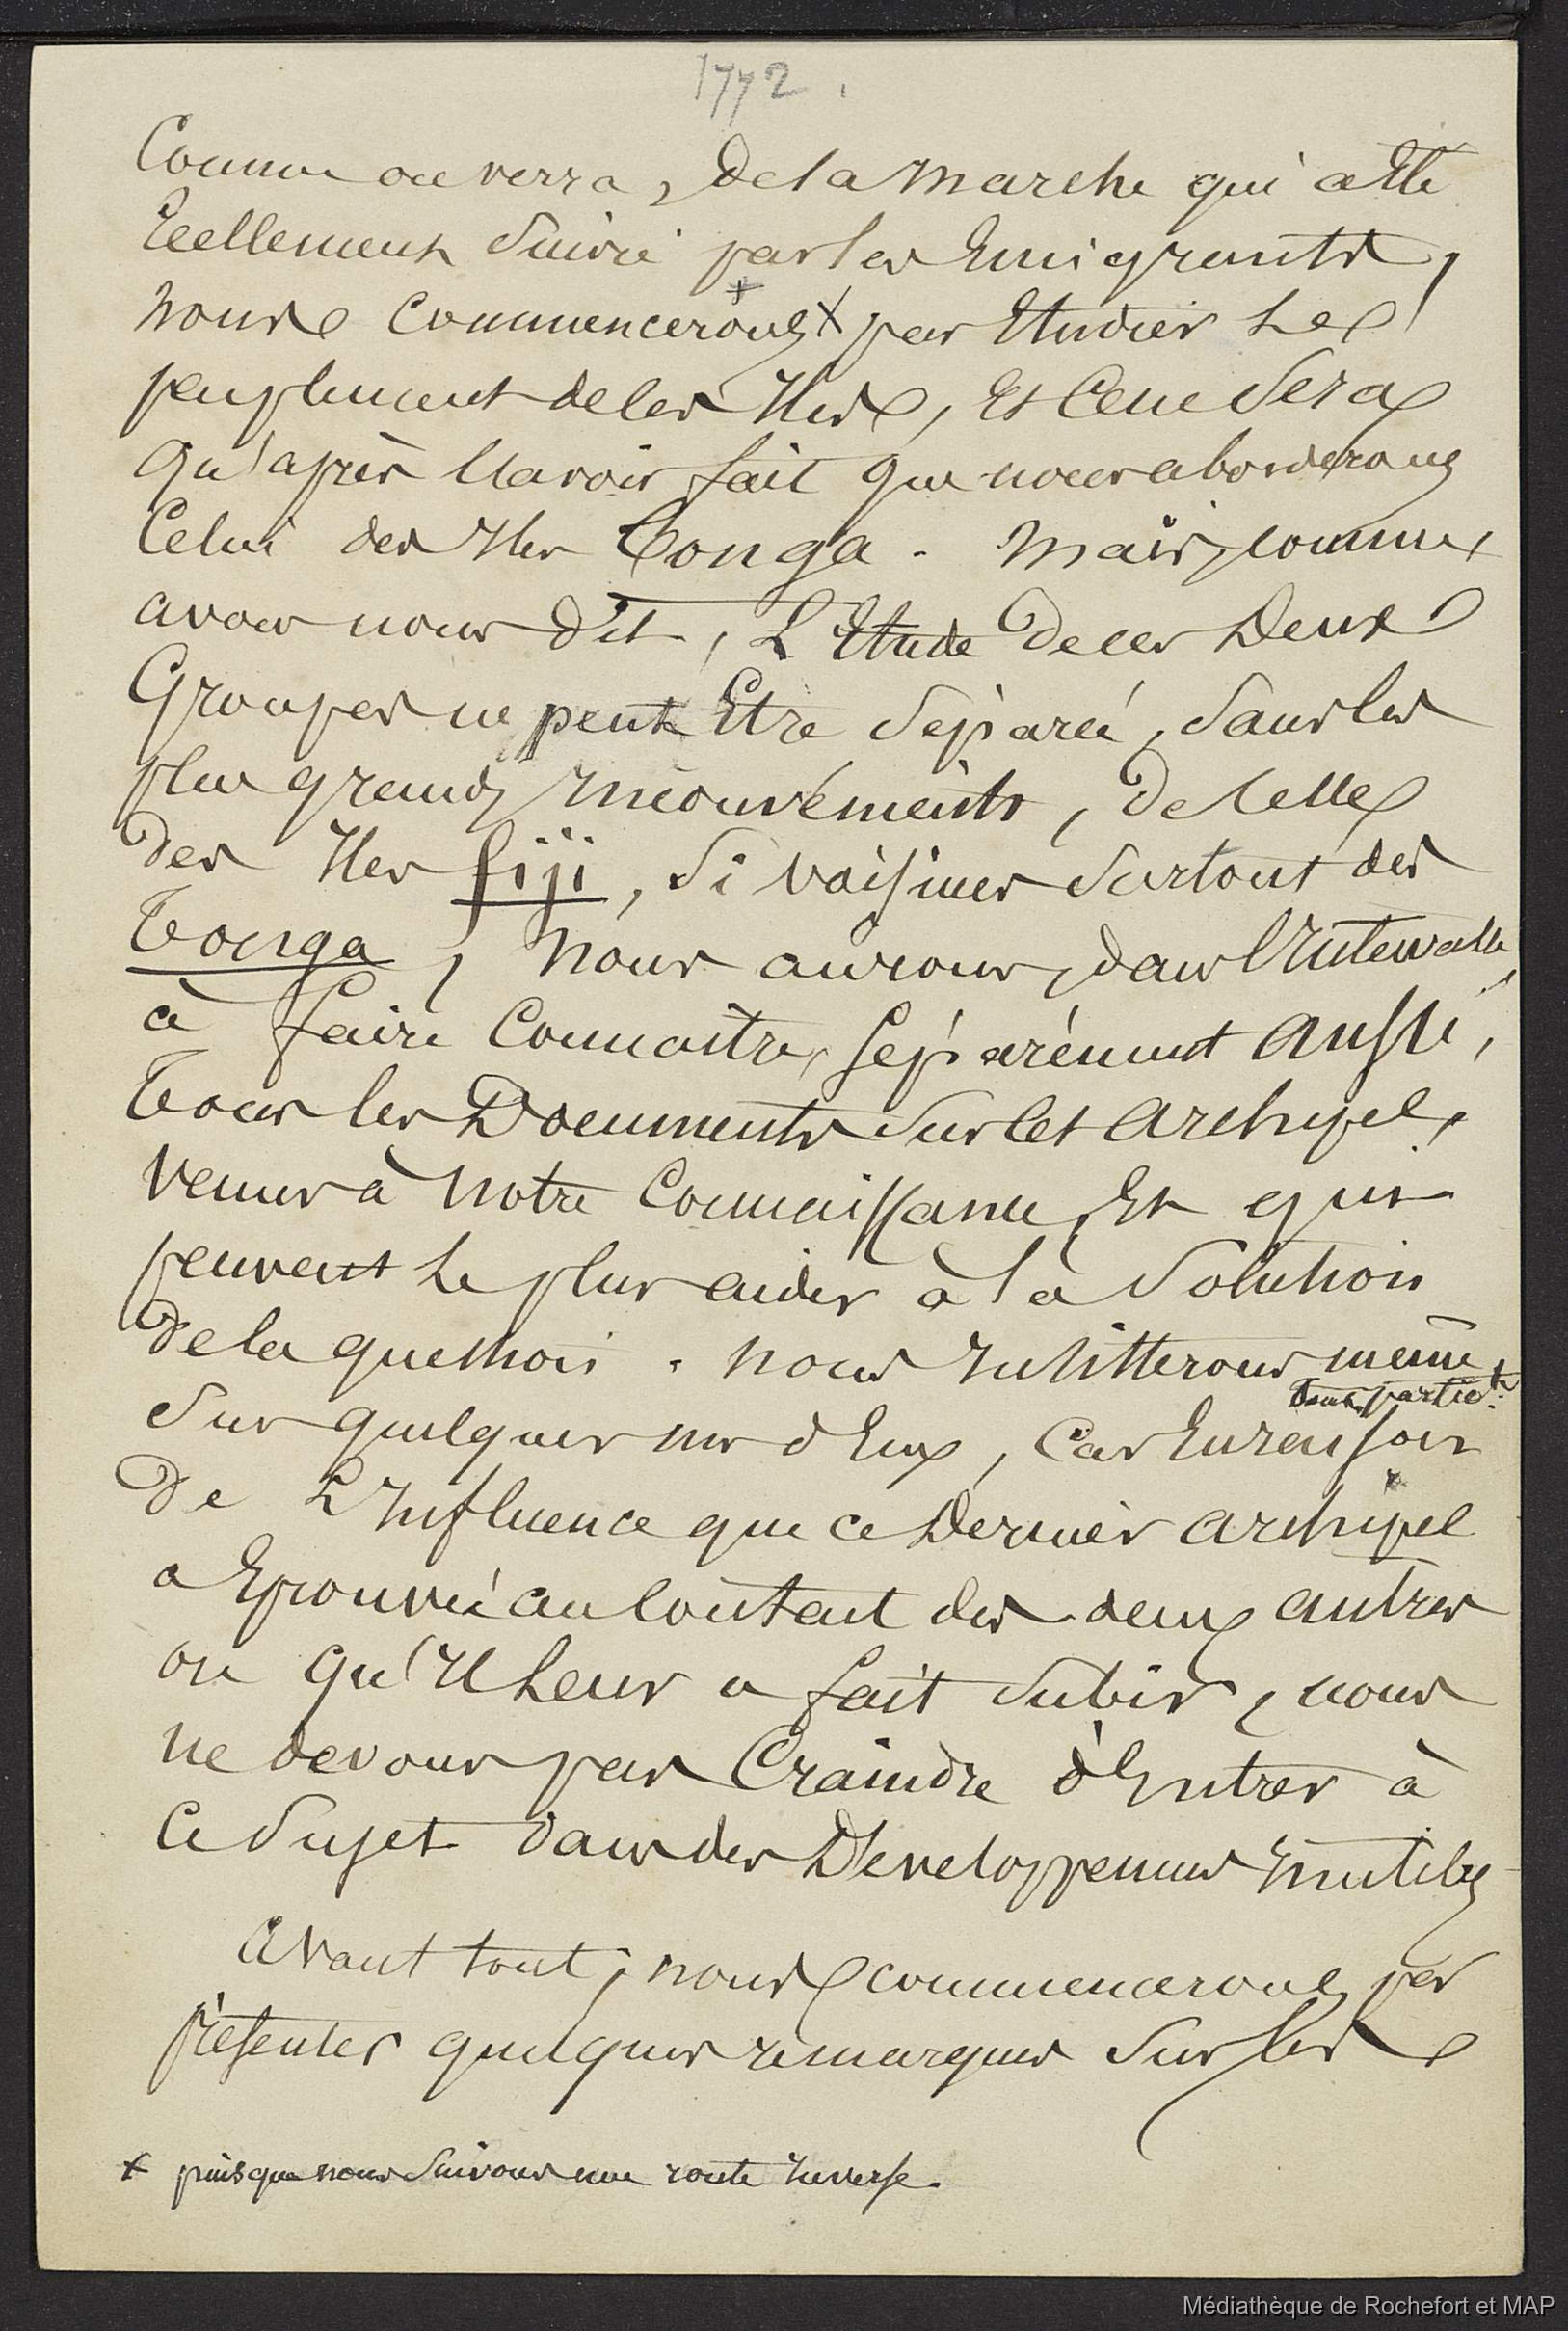 1772.
Comme on verra, de la marche qui a été
réellement Suivie par les Emigrants,
nous commencerons + par Etudier Le
peuplement de les Iles, Et Ce ne Sera
qu'après l'avoir fait que nous aborderons
Celui des Iles Tonga. Mais, comme
avons nous dit, L'Etude de ces Deux
Groupes ne peut Etre Séparée, Sans les
plus grands Inconvénients, de Celle
des Iles fiji, Si voisines Surtout des
Tonga, nous aurons, dans l'Intervalle,
à faire Connaitre, Séparément aussi,
Tous les Documents Sur Cet Archipel,
venus à notre Connaissance, Et qui
peuvent Le plus aider à la Solution
de la question. nous Insisterons même,
tout partic.t
Sur quelques uns d'Eux, Car En raison
De L'Influence que ce Dernier archipel
a Eprouvée au Contact des deux autres
ou qu'Il Leur a fait Subir, nous
ne devons pas Craindre d'Entrer à
Ce Sujet dans des Developpemens Inutiles
Avant tout, nous commencerons par
présenter quelques remarques Sur les
+ puisque nous Suivons une route Inverse.
Médiathèque de Rochefort et MAP